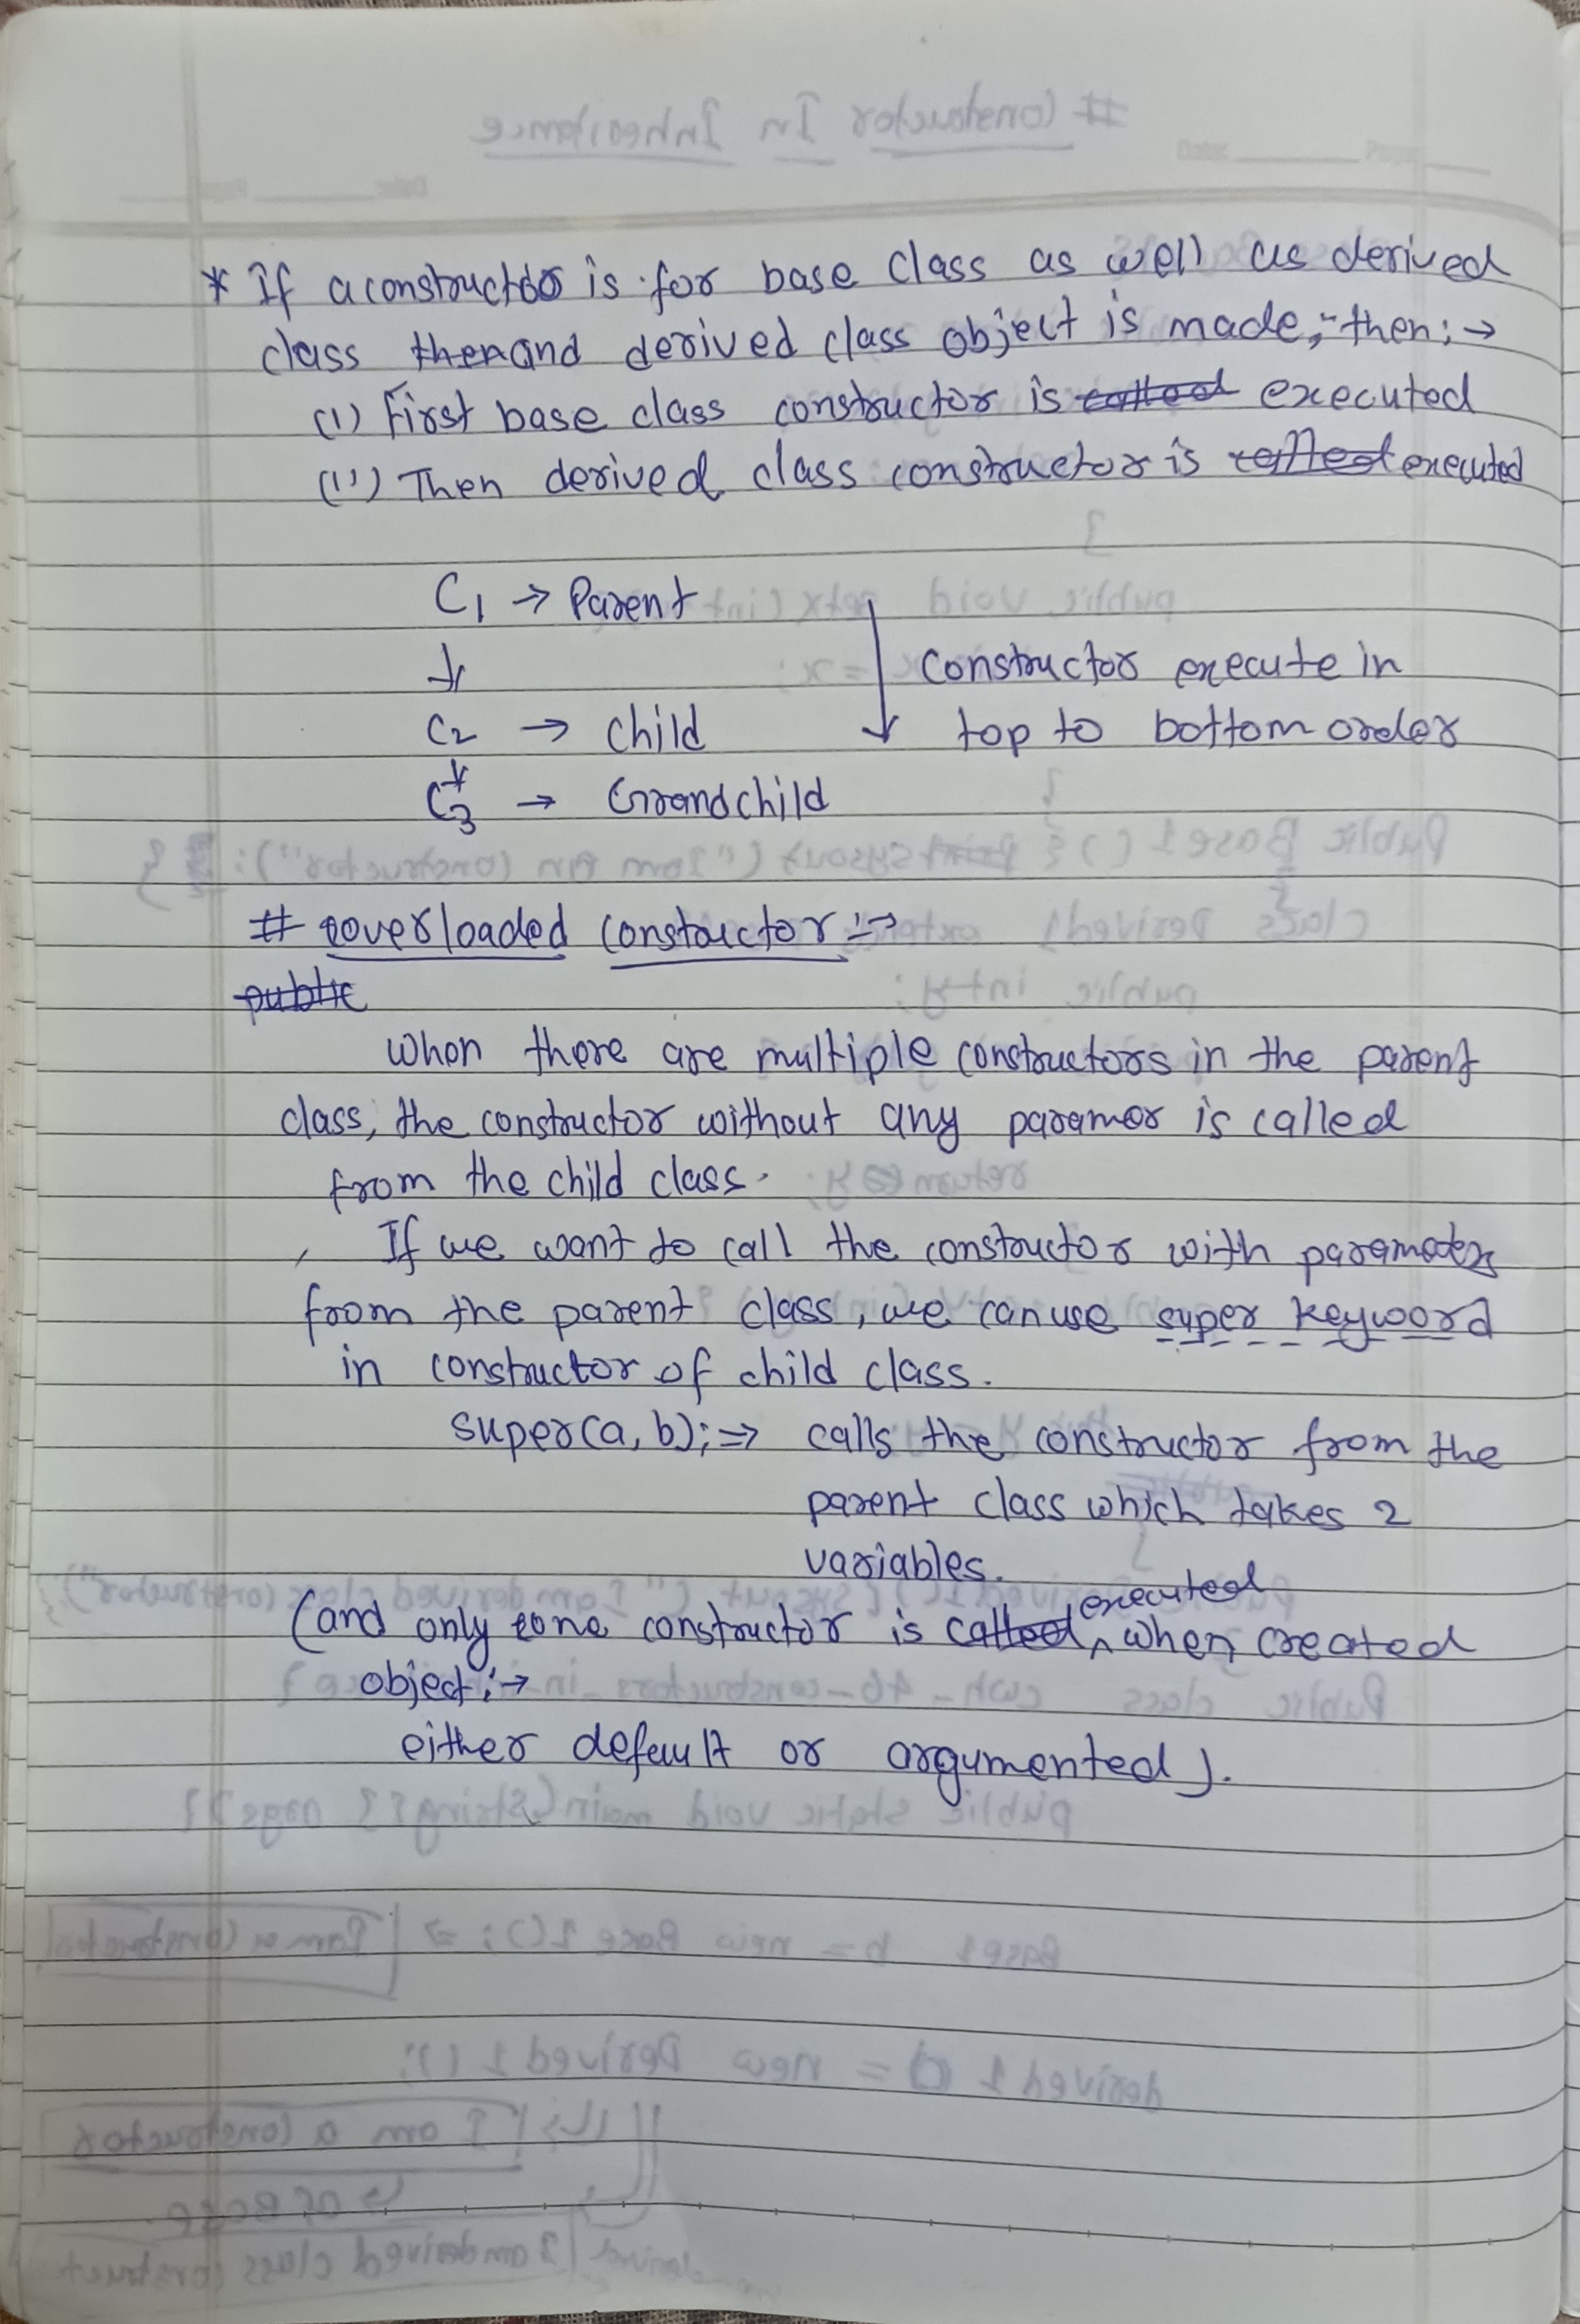 * If a constructor is for base class as well as derived
class then and derived class object is made, then :→
(i) First base class constructor is called executed
(ii) Then derived class constructor is called executed
C1 → Parent
↓
C2 → child
↓
C3 → Grandchild
↓ Constructor execute in
top to bottom order
# overloaded constructor :→
public
When there are multiple constructors in the parent
class, the constructor without any paramer is called
from the child class.
If we want to call the constructor with parameters
from the parent class, we can use super keyword
in constructor of child class.
super(a, b); ⇒ calls the constructor from the
parent class which takes 2
variables.
(and only one constructor is called executed when created
object :→
either default or argumented).